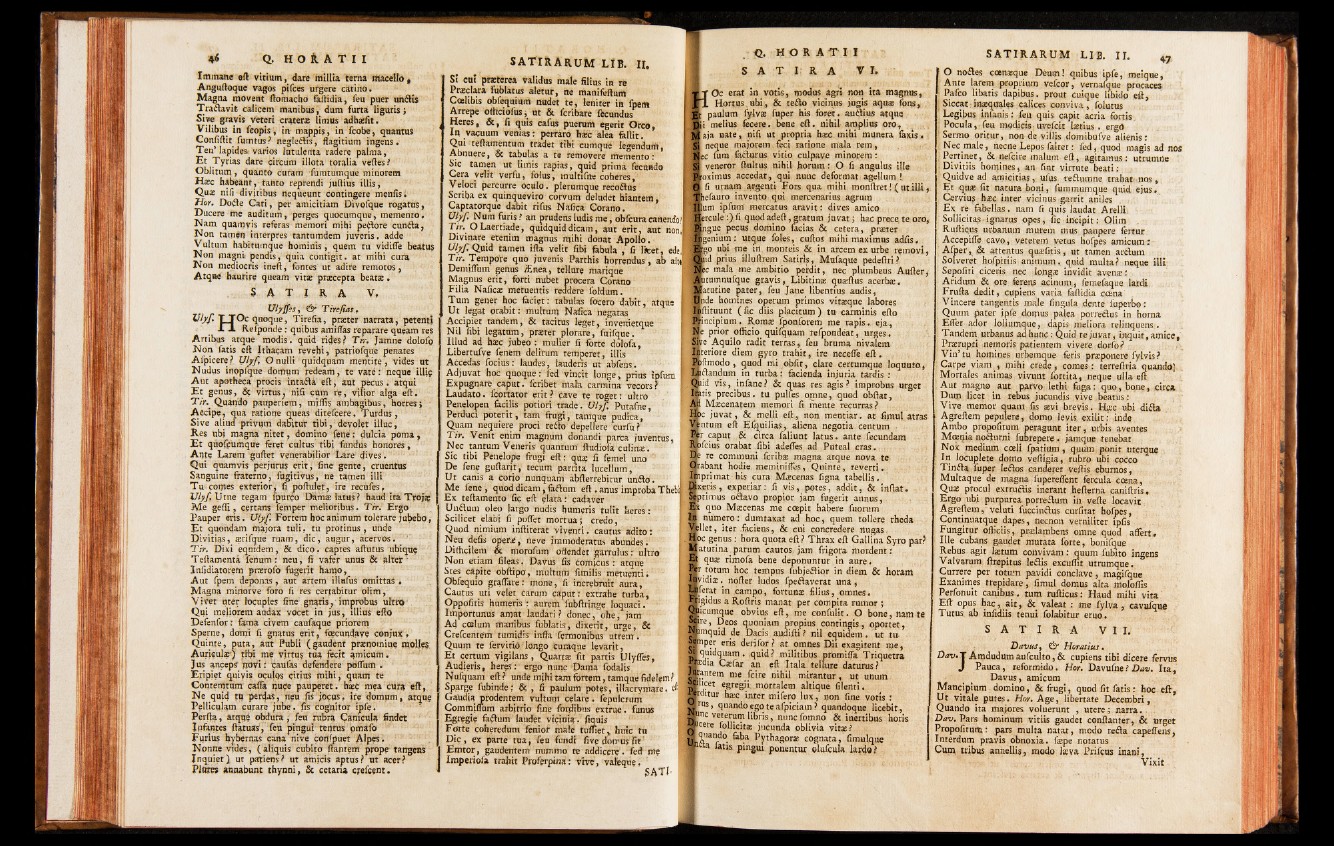 46 Q. HORATII
Immane eſt vitium, dare millia terna macello,
Anguſtoque vagos piſces urgere catino.
Magna movent ſtomacho faſtidia, ſeu puer unctis
Tractavit calicem manibus, dum furta liguris;
Sive gravis veteri crateræ limus adhæſit.
Vilibus in ſcopis, in mappis, in ſcobe, quantus
Conſiſtit ſumtus? neglectis, flagitium ingens.
Ten' lapides varios lutulenta radere palma,
Et Tyrias dare circum illota toralia veſtes?
Oblitum, quanto curam ſumtumque minorem
Hæc habeant, tanto reprendi juſtius illis,
Quæ niſi divitibus nequeunt contingere menſis.
Hor. Docte Cati, per amicitiam Divoſque rogatus,
Ducere me auditum, perges quocumque, memento.
Nam quamvis referas memori mihi pectore cuncta,
Non tamen interpres tantumdem juveris. adde
Vultum habitumque hominis, quem tu vidiſſe beatus
Non magni pendis, quia contigit. at mihi cura
Non mediocris ineſt, fontes ut adire remotos,
Atque haurire queam vitæ præcepta beatæ.
SATIRA V.
Ulyſſes, & Tireſias.
Ulyſ. HOc quoque, Tireſia, præter narrata, petenti
Reſponde: quibus amiſſas reparare queam res
Artibus atque modis. quid rides? Tir. Jamne doloſo
Non ſatis eſt Ithacam revehi, patrioſque penates
Aſpicere? Ulyſ. O nulli quidquam mentite, vides ut
Nudus inopſque domum redeam, te vate: neque illic
Aut apotheca procis intacta eſt, aut pecus. atqui
Et genus, & virtus, niſi cum re, vilior alga eſt.
Tir. Quando pauperiem, miſſis ambagibus, horres;
Accipe, qua ratione queas diteſcere. Turdus,
Sive aliud privum dabitur tibi, devolet illuc,
Res ubi magna nitet, domino ſene: dulcia poma,
Et quoſcumque feret cultus tibi fundus honores,
Ante Larem guſtet venerabilior Lare dives.
Qui quamvis perjurus erit, ſine gente, cruentus
Sanguine fraterno, fugitivus, ne tamen illi
Tu comes exterior, ſi poſtulet, ire recuſes.
Ulyſ. Utne tegam ſpurco Damæ latus? haud ita Trojæ
Me geſſi, certans ſemper melioribus. Tir. Ergo
Pauper eris. Ulyſ. Fortem hoc animum tolerare jubebo,
Et quondam majora tuli. tu protinus, unde
Divitias, æriſque ruam, dic, augur, acervos.
Tir. Dixi equidem, & dico. captes aſtutus ubique
Teſtamenta ſenum: neu, ſi vafer unus & alter
Inſidiatorem præroſo fugerit hamo,
Aut ſpem deponas, aut artem illuſus omittas.
Magna minorve foro ſi res certabitur olim,
Vivet uter locuples ſine gnatis, improbus ultro
Qui meliorem audax vocet in jus, illius eſto
Defenſor: fama civem cauſaque priorem
Sperne, domi ſi gnatus erit, fœcundave conjux.
Quinte, puta, aut Publi (gaudent prænomine molles
Auriculæ) tibi me virtus tua fecit amicum.
Jus anceps novi: cauſas defendere poſſum.
Eripiet quivis oculos citius mihi, quam te
Contemtum caſſa nuce pauperet. hæc mea cura eſt,
Ne quid tu perdas, neu ſis jocus. ire domum, atque
Pelliculam curare jube. fis cognitor ipſe.
Perſta, atque obdura, ſeu rubra Canicula findet
Infantes ſtatuas, ſeu pingui tentus omaſo
Furius hybernas cana nive conſpuet Alpes.
Nonne vides, (aliquis cubito ſtantem prope tangens
Inquiet) ut patiens? ut amicis aptus? ut acer?
Plures annabunt thynni, & cetaria creſcent.
SATIRARUM LIB. II.
Si cui præterea validus male filius in re
Præclara ſublatus aletur, ne manifeſtum
Cœlibis obſequium nudet te, leniter in ſpem
Arrepe officioſus, ut & ſcribare ſecundus
Heres, &, ſi quis caſus puerum egerit Orco,
In vacuum venias: perraro hæc alea fallit.
Qui teſtamentum tradet tibi cumque legendum,
Abnuere, & tabulas a te removere memento:
Sic tamen ut limis rapias, quid prima ſecundo
Cera velit verſu, ſolus, multiſne coheres,
Veloci percurre oculo. plerumque recoctus
Scriba ex quinqueviro corvum deludet hiantem,
Captatorque dabit riſus Naſica Corano.
Ulyſ. Num furis? an prudens ludis me, obſcura canendo?
Tir. O Laertiade, quidquid dicam, aut erit, aut non.
Divinare etenim magnus mihi donat Apollo.
Ulyſ. Quid tamen iſta velit ſibi fabula, ſi licet, ede.
Tir. Tempore quo juvenis Parthis horrendus, ab alto
Demiſſum genus Ænea, tellure marique
Magnus erit, forti nubet procera Corano
Filia Naſicæ metuentis reddere ſoldum.
Tum gener hoc faciet: tabulas ſocero dabit, atque
Ut legat orabit: multum Naſica negatas
Accipiet tandem, & tacitus leget, invenietque
Nil ſibi legatum, præter plorare, ſuiſque.
Illud ad hæc jubeo: mulier ſi forte doloſa,
Libertuſve ſenem delirum temperet, illis
Accedas ſocius: laudes, lauderis ut abſens.
Adjuvat hoc quoque: ſed vincit longe, prius ipſum
Expugnare caput. ſcribet mala carmina vecors?
Laudato. ſcortator erit? cave te roget: ultro
Penelopen facilis potiori trade. Ulyſ. Putaſne,
Perduci poterit, tam frugi, tamque pudica,
Quam nequiere proci recto depellere curſu?
Tir. Venit enim magnum donandi parca juventus,
Nec tantum Veneris quantum ſtudioſa culinæ.
Sic tibi Penelope frugi eſt: quæ ſi ſemel uno
De ſene guſtarit, tecum partita lucellum,
Ut canis a corio nunquam abſterrebitur uncto.
Me ſene, quod dicam, factum eſt. anus improba Thebis
Ex teſtamento ſic eſt elata: cadaver
Unctum oleo largo nudis humeris tulit heres:
Scilicet elabi ſi poſſet mortua; credo,
Quod nimium inſtiterat viventi. cautus adito:
Neu deſis operæ, neve immoderatus abundes.
Difficilem & moroſum offendet garrulus: ultro
Non etiam ſileas. Davus ſis comicus: atque
Stes capite obſtipo, multum ſimilis metuenti.
Obſequio graſſare: mone, ſi increbruit aura,
Cautus uti velet carum caput: extrahe turba,
Oppoſitis humeris: aurem ſubſtringe loquaci.
Importunus amat laudari? donec, ohe, jam
Ad cœlum manibus ſublatis, dixerit, urge, &
Creſcentem tumidis infla ſermonibus utrem.
Quum te ſervitio longo curaque levarit,
Et certum vigilans, Quartæ ſit partis Ulyſſes,
Audieris, heres: ergo nunc Dama ſodalis
Nuſquam eſt? unde mihi tam fortem, tamque fidelem?
Sparge ſubinde: &, ſi paulum potes, illacrymare. eſt
Gaudia prodentem vultum celare. ſepulcrum
Commiſſum arbitrio ſine ſordibus extrue. funus
Egregie factum laudet vicinia. ſiquis
Forte coheredum ſenior male tuſſiet, huic tu
Dic, ex parte tua, ſeu fundi ſive domus ſit
Emtor, gaudentem nummo te addicere. ſed me
Imperioſa trahit Proſerpina: vive, valeque.
SATI-
Q. HORATII
SATIRA VI.
HOc erat in votis, modus agri non ita magnus,
Hortus ubi, & tecto vicinus jugis aquæ fons,
Et paulum ſylvæ ſuper his foret. auctius atque
Dii melius fecere. bene eſt. nihil amplius oro,
Maja nate, niſi ut propria hæc mihi munera faxis,
Si neque majorem feci ratione mala rem,
Nec ſum facturus vitio culpave minorem:
Si veneror ſtultus nihil horum: O ſi angulus ille
Proximus accedat, qui nunc deformat agellum!
O ſi urnam argenti Fors qua mihi monſtret! (ut illi,
Theſauro invento qui mercenarius agrum
Illum ipſum mercatus aravit: dives amico
Hercule:) ſi quod adeſt, gratum juvat; hac prece te oro,
Pingue pecus domino facias & cetera, præter
Ingenium: utque ſoles, cuſtos mihi maximus adſis.
Ergo ubi me in monteis & in arcem ex urbe removi,
Quid prius illuſtrem Satiris, Muſaque pedeſtri?
Nec mala me ambitio perdit, nec plumbeus Auſter,
Autumnuſque gravis, Libitinæ quæſtus acerbæ.
Matutine pater, ſeu Jane libentius audis,
Unde homines operum primos vitæque labores
Inſtituunt (ſic diis placitum) tu carminis eſto
Principium. Romæ ſponſorem me rapis. eja,
Ne prior officio quiſquam reſpondeat, urges.
Sive Aquilo radit terras, ſeu bruma nivalem
Interiore diem gyro trahit, ire neceſſe eſt.
Poſtmodo, quod mi obſit, clare certumque loquuto,
Luctandum in turba: facienda injuria tardis:
Quid vis, inſane? & quas res agis? improbus urget
Iratis precibus. tu pulſes omne, quod obſtat,
Ad Mæcenatem memori ſi mente recurras?
Hoc juvat, & melli eſt, non mentiar. at ſimul atras
Ventum eſt Eſquilias, aliena negotia centum
Per caput & circa ſaliunt latus. ante ſecundam
Roſcius orabat ſibi adeſſes ad Puteal cras.
De re communi ſcribæ magna atque nova te
Orabant hodie meminiſſes, Quinte, reverti.
Imprimat his cura Mæcenas ſigna tabellis.
Dixeris, experiar: ſi vis, potes, addit, & inſtat.
Septimus octavo propior jam fugerit annus,
Ex quo Mæcenas me cœpit habere ſuorum
In numero: dumtaxat ad hoc, quem tollere rheda
Vellet, iter faciens, & cui concredere nugas
Hoc genus: hora quota eſt? Thrax eſt Gallina Syro par?
Matutina parum cautos jam frigora mordent:
Et quæ rimoſa bene deponuntur in aure.
Per totum hoc tempus ſubjectior in diem & horam
Invidiæ. noſter ludos ſpectaverat una,
Luſerat in campo, fortunæ filius, omnes.
Frigidus a Roſtris manat per compita rumor;
Quicumque obvius eſt, me conſulit. O bone, nam te
Scire, Deos quoniam propius contingis, oportet,
Numquid de Dacis audiſti? nil equidem. ut tu
Semper eris deriſor! at omnes Dii exagitent me,
Si quidquam. quid? militibus promiſſa Triquetra
Prædia Cæſar an eſt Itala tellure daturus?
Jurantem me ſcire nihil mirantur, ut unum
Scilicet egregii mortalem altique ſilenti.
Perditur hæc inter miſero lux, non ſine votis:
O rus, quando ego te aſpiciam? quandoque licebit,
Nunc veterum libris, nunc ſomno & inertibus horis
Ducere ſollicitæ jucunda oblivia vitæ?
O quando faba Pythagoræ cognata, ſimulque
Uncta ſatis pingui ponentur oluſcula lardo?
SATIRARUM LIB. II. 47
O noctes cœnæque Deum! quibus ipſe, meique,
Ante larem proprium veſcor, vernaſque procaces
Paſco libatis dapibus. prout cuique libido eſt,
Siccat inæquales calices conviva, ſolutus
Legibus inſanis: ſeu quis capit acria fortis
Pocula, ſeu modicis uveſcit lætius. ergo
Sermo oritur, non de villis domibuſve alienis:
Nec male, necne Lepos ſaltet: ſed, quod magis ad nos
Pertinet, & neſcire malum eſt, agitamus: utrumne
Divitiis homines, an ſint virtute beati:
Quidve ad amicitias, uſus rectumne trahat nos,
Et quæ ſit natura boni, ſummumque quid ejus.
Cervius hæc inter vicinus garrit aniles
Ex re fabellas. nam ſi quis laudat Arelli
Sollicitas ignarus opes, ſic incipit: Olim
Ruſticus urbanum murem mus paupere fertur
Accepiſſe cavo, veterem vetus hoſpes amicum:
Aſper, & attentus quæſitis, ut tamen arctum
Solveret hoſpitiis animum, quid multa? neque illi
Sepoſiti ciceris nec longæ invidit avenæ:
Aridum & ore ferens acinum, ſemeſaque lardi
Fruſta dedit, cupiens varia faſtidia cœna
Vincere tangentis male ſingula dente ſuperbo:
Quum pater ipſe domus palea porrectus in horna
Eſſet ador loliumque, dapis meliora relinquens.
Tandem urbanus ad hunc: Quid te juvat, inquit, amice,
Prærupti nemoris patientem vivere dorſo?
Vin' tu homines urbemque feris præponere ſylvis?
Carpe viam, mihi crede, comes: terreſtria quando
Mortales animas vivunt ſortita, neque ulla eſt
Aut magno aut parvo lethi fuga: quo, bone, circa
Dum licet in rebus jucundis vive beatus:
Vive memor quam ſis ævi brevis. Hæc ubi dicta
Agreſtem pepulere, domo levis exilit: inde
Ambo propoſitum peragunt iter, urbis aventes
Mœnia nocturni ſubrepere. jamque tenebat
Nox medium cœli ſpatium, quum ponit uterque
In locuplete domo veſtigia, rubro ubi cocco
Tincta ſuper lectos canderet veſtis eburnos,
Multaque de magna ſupereſſent fercula cœna,
Quæ procul extructis inerant heſterna caniſtris.
Ergo ubi purpurea porrectum in veſte locavit
Agreſtem, veluti ſuccinctus curſitat hoſpes,
Continuatque dapes, necnon verniliter ipſis
Fungitur officiis, prælambens omne quod affert.
Ille cubans gaudet mutata ſorte, boniſque
Rebus agit lætum convivam: quum ſubito ingens
Valvarum ſtrepitus lectis excuſſit utrumque.
Currere per totum pavidi conclave, magiſque
Exanimes trepidare, ſimul domus alta moloſſis
Perſonuit canibus. tum ruſticus: Haud mihi vita
Eſt opus hac, ait, & valeat: me ſylva, cavuſque
Tutus ab inſidiis tenui ſolabitur ervo.
SATIRA VII.
Davus, & Horatius.
Dav. JAmdudum auſculto, & cupiens tibi dicere ſervus
Pauca, reformido. Hor. Davuſne? Dav. Ita,
Davus, amicum
Mancipium domino, & frugi, quod ſit ſatis: hoc eſt,
Ut vitale putes. Hor. Age, libertate Decembri,
Quando ita majores voluerunt, utere; narra.
Dav. Pars hominum vitiis gaudet conſtanter, & urget
Propoſitum: pars multa natat, modo recta capeſſens,
Interdum pravis obnoxia. ſæpe notatus
Cum tribus annellis, modo læva Priſcus inani,
Vixit